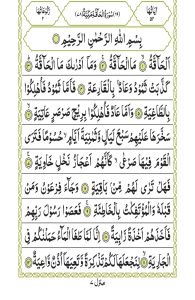 بِسْمِ اللّٰهِ الرَّحْمٰنِ الرَّحِیْمِ
اَلْحَآقَّةُ مَا الْحَآقَّةُ وَمَاۤ اَدْرٰىكَ مَا الْحَآقَّةُ
كَذَّبَتْ ثَمُوْدُ وَعَادٌۢ بِالْقَارِعَةِ فَاَمَّا ثَمُوْدُ فَاُهْلِكُوْا
بِالطَّاغِیَةِ وَاَمَّا عَادٌ فَاُهْلِكُوْا بِرِیْحٍ صَرْصَرٍ عَاتِیَةٍ
سَخَّرَهَا عَلَیْهِمْ سَبْعَ لَیَالٍ وَّثَمٰنِیَةَ اَیَّامٍ حُسُوْمًا فَتَرَى
الْقَوْمَ فِیْهَا صَرْعٰى كَاَنَّهُمْ اَعْجَازُ نَخْلٍ خَاوِیَةٍ
فَهَلْ تَرٰى لَهُمْ مِّنْۢ بَاقِیَةٍ وَجَآءَ فِرْعَوْنُ وَمَنْ
قَبْلَهٗ وَالْمُؤْتَفِكٰتُ بِالْخَاطِئَةِ فَعَصَوْا رَسُوْلَ رَبِّهِمْ
فَاَخَذَهُمْ اَخْذَةً رَّابِیَةً اِنَّا لَمَّا طَغَا الْمَآءُ حَمَلْنٰكُمْ فِی
الْجَارِیَةِ لِنَجْعَلَهَا لَكُمْ تَذْكِرَةً وَّتَعِیَهَاۤ اُذُنٌ وَّاعِیَةٌ